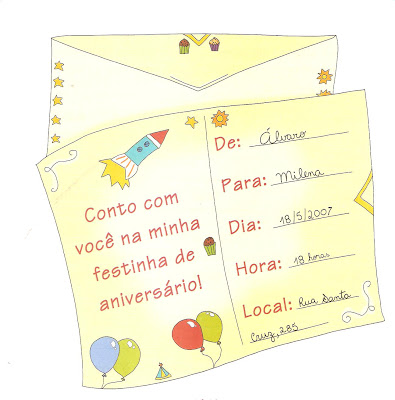 Conto com
você na minha
festinha de
aniversário!
De: Álvaro
Para: Milena
Dia: 18/5/2007
Hora: 18 horas
Local: Rua Santa
Cruz, 285